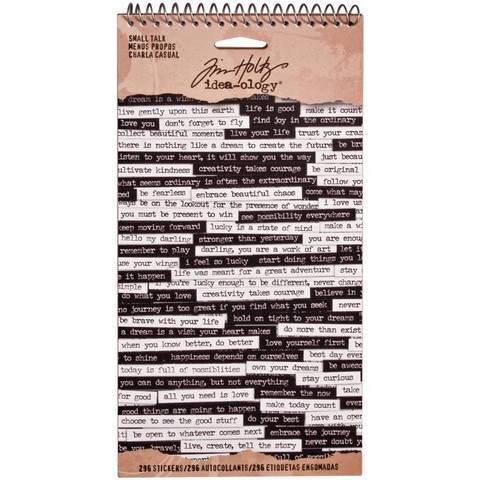 SMALL TALK
MENUS PROPOS
CHARLA CASUAL
Tim Holtz
idea-ology®
dream is a wish
live gently upon this earth life is good make it count
love you don't forget to fly find joy in the ordinary
collect beautiful moments live your life trust your craz
there is nothing like a dream to create the future be bra
listen to your heart, it will show you the way just becau
ultivate kindness creativity takes courage be original
what seems ordinary is often the extraordinary follow
ed be fearless embrace beautiful chaos come what may
ays be on the lookout for the presence of wonder i love us
you must be present to win see possibility everywhere
keep moving forward lucky is a state of mind make a w
hello my darling stronger than yesterday you are enoug
remember to play darling, you are a work of art let it
use your wings i feel so lucky start doing things you l
it happen life was meant for a great adventure stay
simple if you're lucky enough to be different, never chang
do what you love creativity takes courage believe in
no journey is too great if you find what you seek never
be brave with your life hold on tight to your dreams
a dream is a wish your heart makes do more than exist
when you know better, do better love yourself first
to shine happiness depends on ourselves best day ever
today is full of possiblities own your dreams be aweso
you can do anything, but not everything stay curious
for good all you need is love remember the now
good things are going to happen make today count ever
choose to see the good stuff do your best have an open
it be open to whatever comes next embrace the journey
be you bravely live, create, tell the story never doubt
296 STICKERS/296 AUTOCOLLANTS/296 ETIQUETAS ENGOMADAS